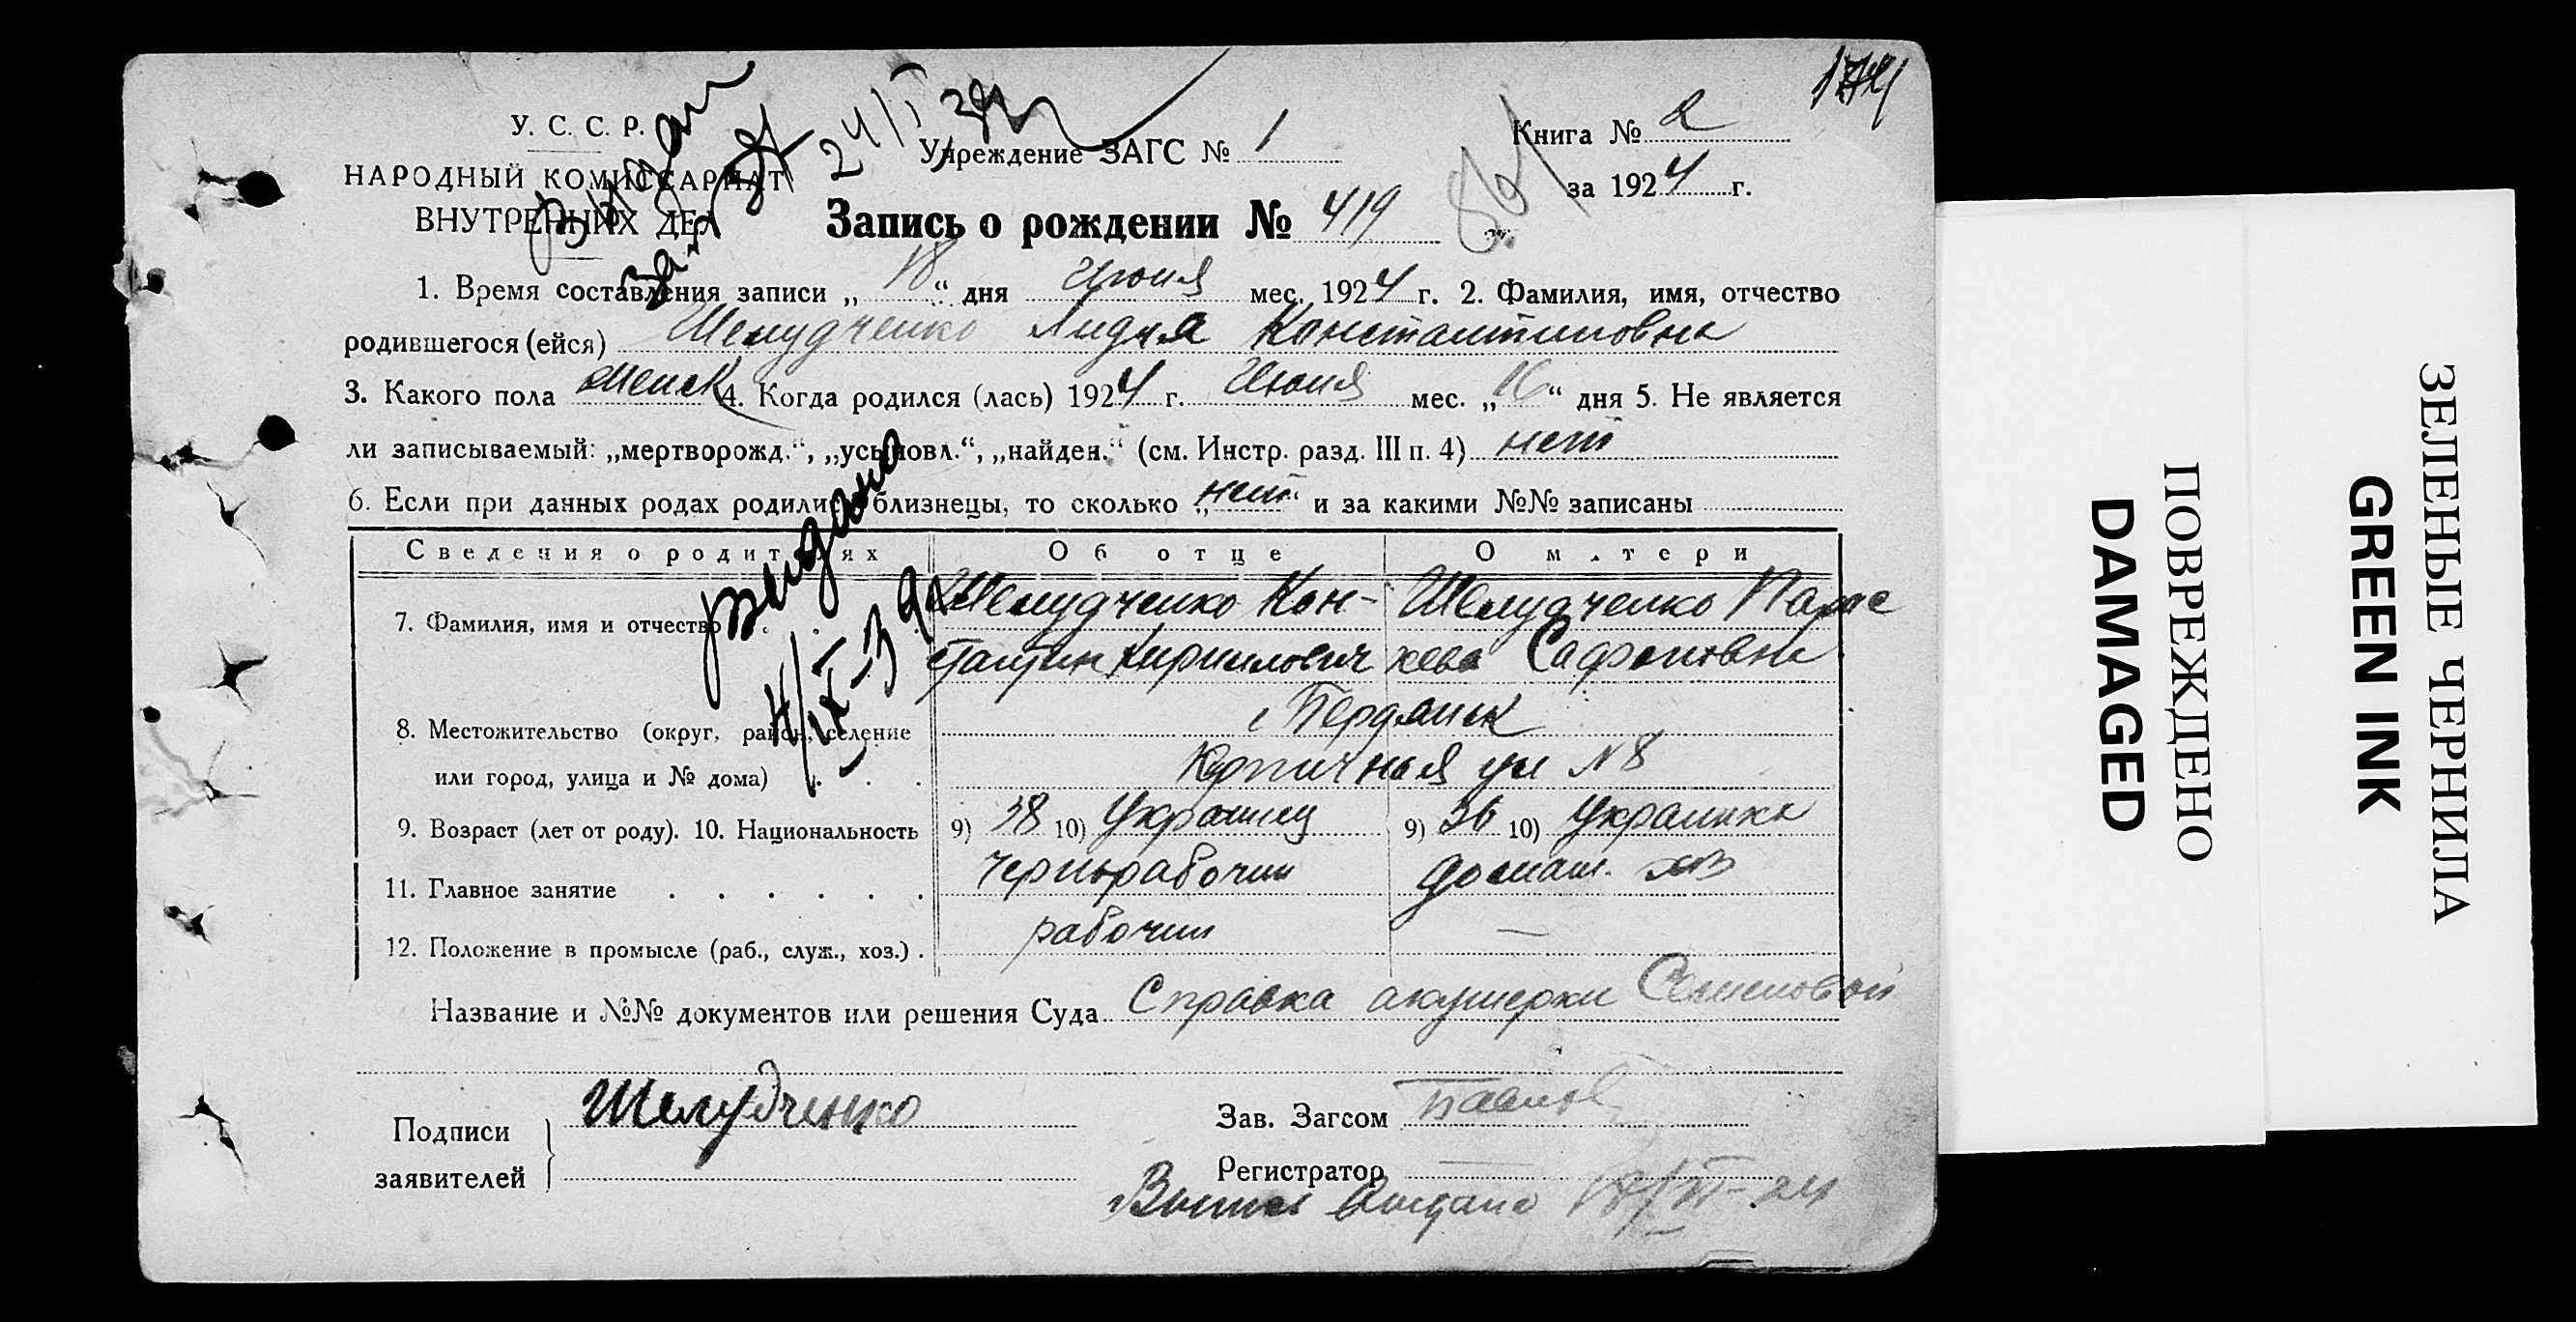 174
У. С. С. Р.
НАРОДНЫЙ КОМИССАРИАТ
ВНУТРЕННИХ ДЕЛ
Учреждение ЗАГС № 1
Книга № 2
за 1924 г.
Запись о рождении № 419
1. Время составления записи „ 18 “ дня Июня мес. 1924 г. 2. Фамилия, имя, отчество
родившегося (ейся) Шелудченко Лидия Константиновна
3. Какого пола женск 4. Когда родился (лась) 1924 г. Июня мес. „ 16 “ дня 5. Не является
ли записываемый: „мертворожд.“, „усыновл.“, „найден.“ (см. Инстр. разд. III п. 4) нет
6. Если при данных родах родились близнецы, то сколько „ нет “ и за какими №№ записаны
Сведения о родителях Об отце О матери
7. Фамилия, имя и отчество Шелудченко Кон- Шелудченко Парас
стантин Кириллович кева Сафроновна
8. Местожительство (округ, район, селение г Бердянск
или город, улица и № дома) Кирпичная ул № 8
9. Возраст (лет от роду). 10. Национальность 9) 38 10) Украинец 9) 36 10) Украинка
11. Главное занятие чернорабочий домаш. хоз
12. Положение в промысле (раб., служ., хоз.) рабочий —
Название и №№ документов или решения Суда Справка акушерки Семеновой
Подписи
заявителей
Шелудченко
Зав. Загсом
Регистратор
Выпись выдана 18/VI-24
выдано
4/IX-39
24/I
ЗЕЛЕНЫЕ ЧЕРНИЛА
GREEN INK
ПОВРЕЖДЕНО
DAMAGED